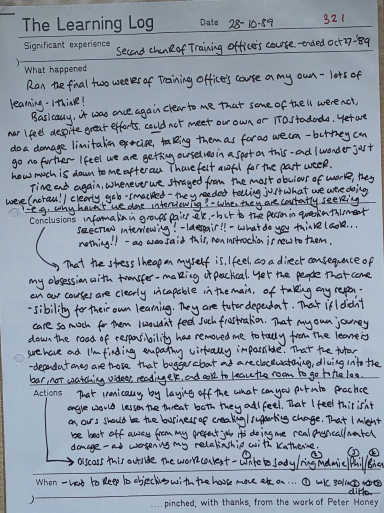 The Learning Log Date 28-10-89 321
Significant experience Second chunk of Training Officers course - ended Oct 27-'89
What happened
Ran the final two weeks of Training Officers course on my own - lots of
learning - I think!
Basically, it was once again clear to me that some of the 11 were not,
nor I feel despite great efforts, could not meet our own or ITOs standards. Yet we
do a damage limitation exercise, taking them as far as we can - but they can
go no further. I feel we are getting ourselves in a spot on this - and I wonder just
how much is down to me after all. I have felt awful for the past week.
Time and again, whenever we strayed from the most obvious of work, they
were (not all) clearly gob-smacked - they needed telling just what we were doing
- e.g. why haven't we done interviewing? - when they are constantly seeking
Conclusions information in groups pairs etc. - but to the person in question this not
selection interviewing! - I despair!! - what do you think I look...
nothing!! - as was said this, non instruction is new to them.
That the stress I heap on myself is, I feel, as a direct consequence of
my obsession with transfer - making it practical. Yet the people that come
on our courses are clearly incapable in the main, of taking any respon-
-sibility for their own learning. They are tutor dependent. That if I didn't
care so much for them I wouldn't feel such frustration. That my own journey
down the road of responsibility has removed me totally from the learners
we have and I'm finding empathy virtually impossible. That the tutor
-dependent ones are those that bugger about and are clockwatching, diving into the
bar, not watching videos, reading etc. and ask to leave the room to go to the loo.
Actions That ironically by laying off the what can you put into practice
angle would lessen the threat both they and I feel. That I feel this isn't
on, ours should be the business of creating/supporting change. That I might
be best off away from my present job its doing me real physical/mental
damage - and worsening my relationship with Katherine.
Discuss this outside the work context - ① write to Jody/ ② ring Melanie/ ③ Phil/ ④ Brian
When - need to keep to objectives with the house move etc. on... ① w/c
ditto.
.... pinched, with thanks, from the work of Peter Honey